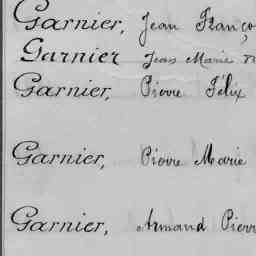 Garnier, Jean Franço
Garnier Jean Marie
Garnier, Pierre Félix
Garnier, Pierre Marie
Garnier, Armand Pierr